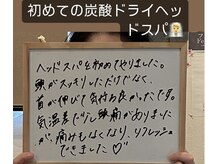 初めての炭酸ドライヘッ
ドスパ💆
ヘッドスパを初めてやりました。
頭がスッキリしただけでなく、
首が伸びて気持ち良かったです。
気温差でひどい頭痛がありました
が、痛みもなくなり、リフレッシュ
できました♡